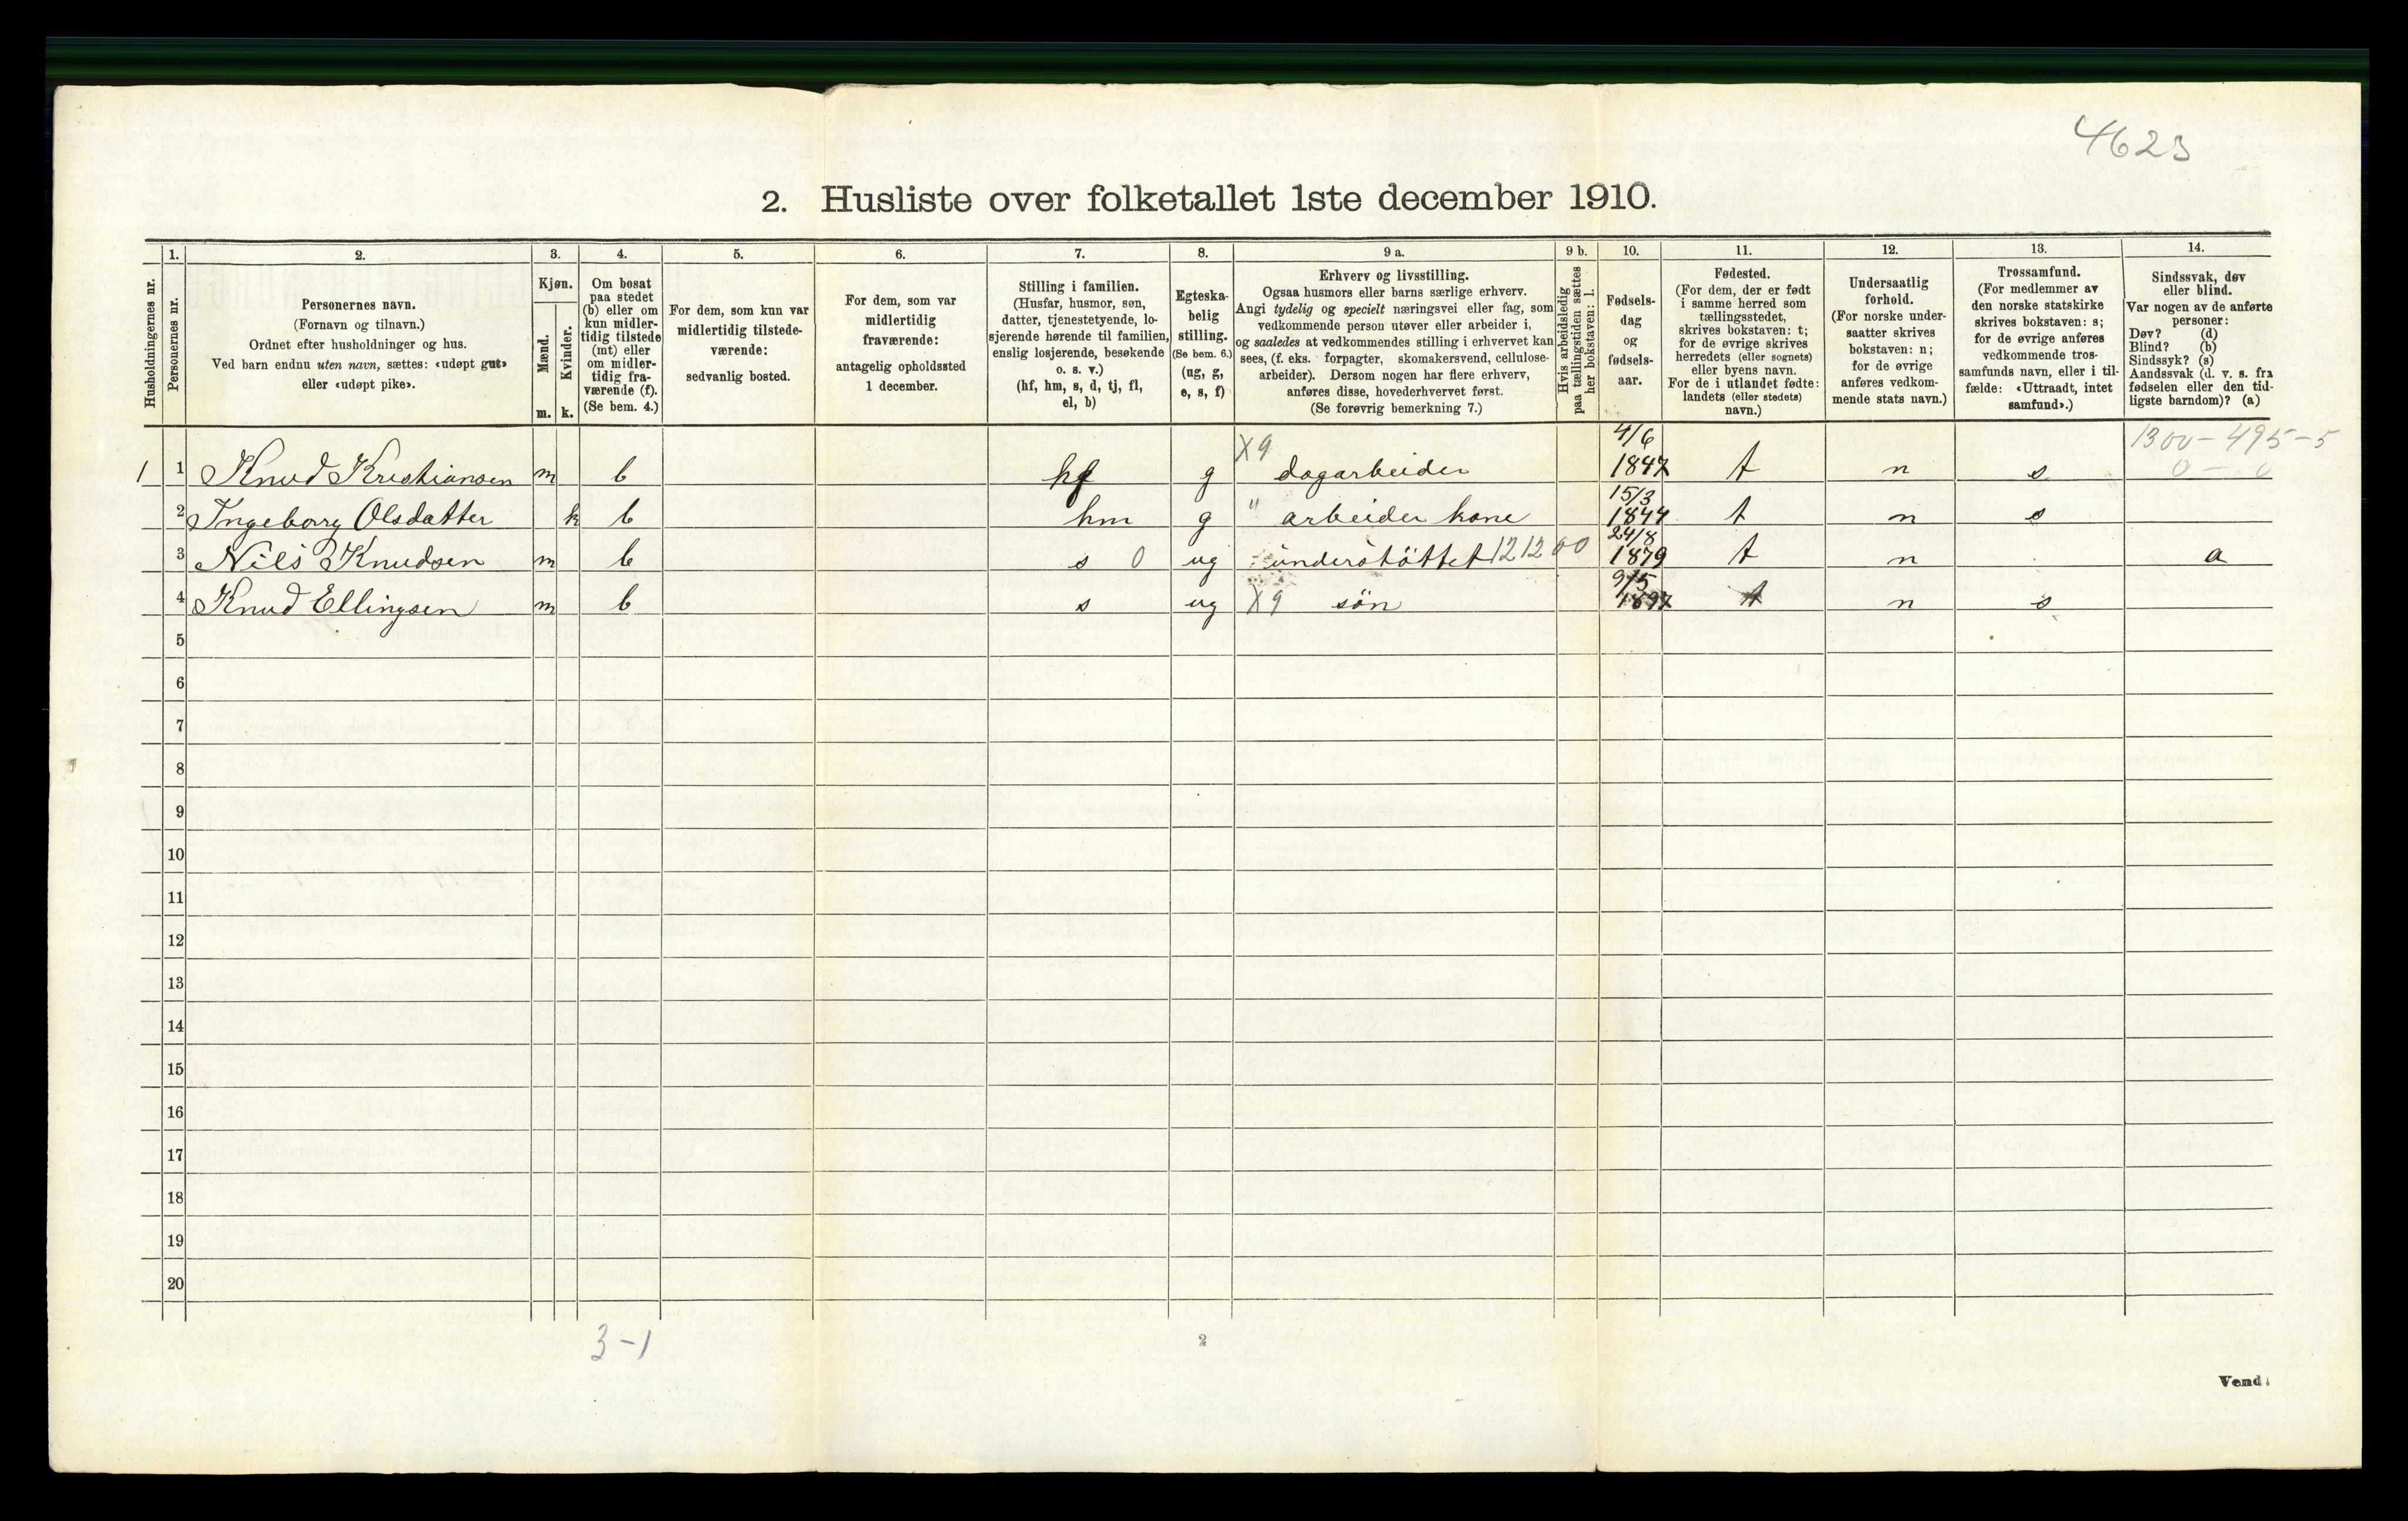 4623
2. Husliste over folketallet 1ste december 1910.
Husholdningernes nr.
1.
Personernes nr.
2.
Personernes navn.
(Fornavn og tilnavn.)
Ordnet efter husholdninger og hus.
Ved barn endnu uten navn, sættes: «udøpt gut»
eller «udøpt pike».
3.
Kjøn.
Mænd.
m.
Kvinder.
k.
4.
Om bosat
paa stedet
(b) eller om
kun midler-
tidig tilstede
(mt) eller
om midler-
tidig fra-
værende (f).
(Se bem. 4.)
5.
For dem, som kun var
midlertidig tilstede-
værende:
sedvanlig bosted.
6.
For dem, som var
midlertidig
fraværende:
antagelig opholdssted
1 december.
7.
Stilling i familien.
(Husfar, husmor, søn,
datter, tjenestetyende, lo-
sjerende hørende til familien,
enslig losjerende, besøkende
o. s. v.)
(hf, hm, s, d, tj, fl,
el, b)
8.
Egteska-
belig
stilling.
(Se bem. 6.)
(ug, g,
e, s, f)
9 a.
Erhverv og livsstilling.
Ogsaa husmors eller barns særlige erhverv.
Angi tydelig og specielt næringsvei eller fag, som
vedkommende person utøver eller arbeider i,
og saaledes at vedkommendes stilling i erhvervet kan
sees, (f. eks. forpagter, skomakersvend, cellulose-
arbeider). Dersom nogen har flere erhverv,
anføres disse, hovederhvervet først.
(Se forøvrig bemerkning 7.)
9 b.
Hvis arbeidsledig
paa tællingstiden sættes
her bokstaven: l.
10.
Fødsels-
dag
og
fødsels-
aar.
11.
Fødested.
(For dem, der er født
i samme herred som
tællingsstedet,
skrives bokstaven: t;
for de øvrige skrives
herredets (eller sognets)
eller byens navn.
For de i utlandet fødte:
landets (eller stedets)
navn.)
12.
Undersaatlig
forhold.
(For norske under-
saatter skrives
bokstaven: n;
for de øvrige
anføres vedkom-
mende stats navn.)
13.
Trossamfund.
(For medlemmer av
den norske statskirke
skrives bokstaven: s;
for de øvrige anføres
vedkommende tros-
samfunds navn, eller i til-
fælde: «Uttraadt, intet
samfund».)
14.
Sindssvak, døv
eller blind.
Var nogen av de anførte
personer:
Døv? (d)
Blind? (b)
Sindssyk? (s)
Aandssvak (d. v. s. fra
fødselen eller den tid-
ligste barndom)? (a)
X9 4/6 1300-495-5
1 1 Knud Kristiansen m b hf g dagarbeider 1847 t n s 0-0
15/3
2 Ingeborg Olsdatter k b hm g " arbeider kone 1844 t n s
24/8
3 Nils Knudsen m b s 0 ug understöttet 1212 00 1879 t n a
9/5
4 Knud Ellingsen m b s ug X9 sön 1897 t n s
5
6
7
8
9
10
11
12
13
14
15
16
17
18
19
20
3-1
2
Vend!